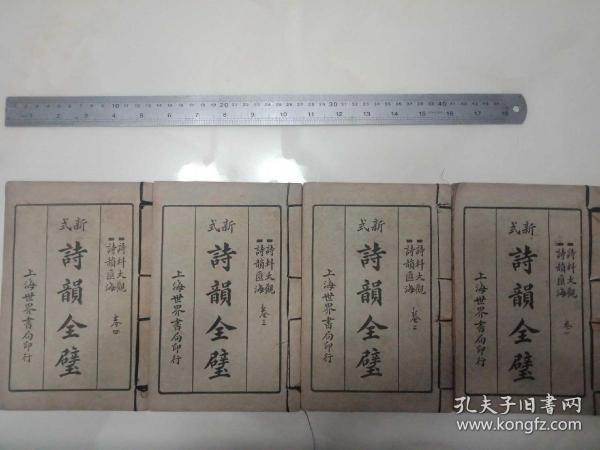 10 20 30 40
1 2 3 4 5 6 7 8 9 10 11 12 13 14 15 16 17 18
詩料大觀
詩韻匯海
卷一
新式
詩韻全璧
上海世界書局印行
詩料大觀
詩韻匯海
卷二
新式
詩韻全璧
上海世界書局印行
詩料大觀
詩韻匯海
卷三
新式
詩韻全璧
上海世界書局印行
詩料大觀
詩韻匯海
卷四
新式
詩韻全璧
上海世界書局印行
孔夫子旧书网
www.kongfz.com